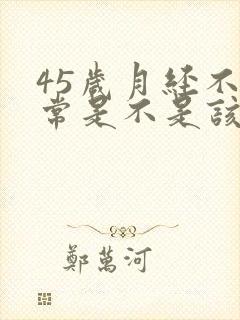 45歲月经不
常是不是該
鄭萬河